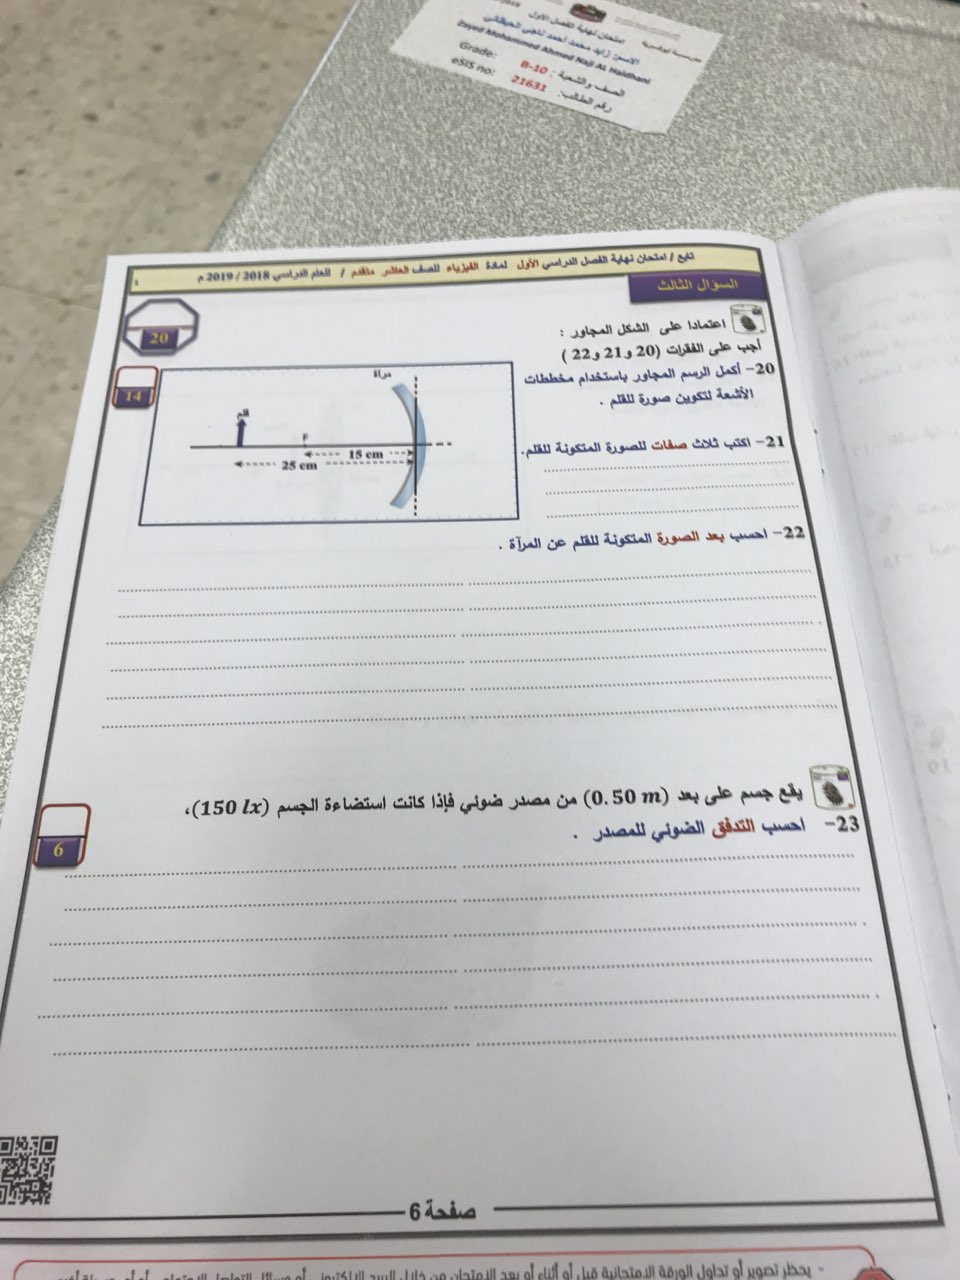 امتحان نهاية الفصل الأول
الاسم: زايد محمد أحمد ناجي
Zayed Mohammed Ahmed Naji AL Haidhani
Grade: B-10 : الصف والشعبة
eSIS no: 21631 رقم الطالب:
تابع / امتحان نهاية الفصل الدراسي الأول لمادة الفيزياء للصف العاشر متقدم / للعام الدراسي 2018 / 2019 م
السؤال الثالث
20
اعتمادا على الشكل المجاور :
أجب على الفقرات (20 و 21 و 22 )
14
20- أكمل الرسم المجاور باستخدام مخططات
الأشعة لتكوين صورة للقلم .
مرآة
قلم
F
15 cm
25 cm
21- اكتب ثلاث صفات للصورة المتكونة للقلم.
22- احسب بعد الصورة المتكونة للقلم عن المرآة .
يقع جسم على بعد (0.50 m) من مصدر ضوئي فإذا كانت استضاءة الجسم (150 lx)،
23- احسب التدفق الضوئي للمصدر .
6
صفحة 6
- يحظر تصوير أو تداول الورقة الامتحانية قبل أو أثناء أو بعد الامتحان من خلال البريد الإلكتروني أو وسائل التواصل الاجتماعي أو أي وسيلة أخرى